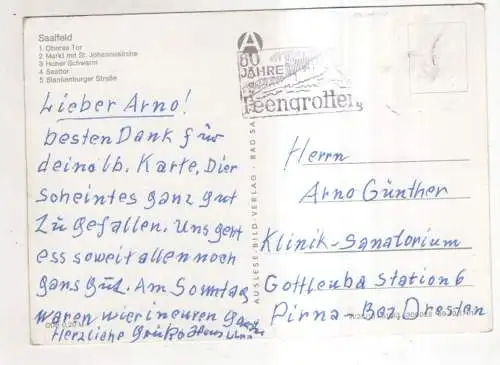 Saalfeld
1 Oberes Tor
2 Markt mit St. Johanneskirche
3 Hoher Schwarm
4 Saaltor
5 Blankenburger Straße
60
JAHRE
Feengrotten
Lieber Arno!
besten Dank für
deine lb. Karte. Dier
scheint es ganz gut
zu gefallen. Uns geht
ess soweit allen noch
gans gut. Am Sonntag
waren wier in euren
Herzliche Grüße
AUSLESE-BILD-VERLAG · BAD SA
Herrn
Arno Günther
Klinik-Sanatorium
Gottleuba Station 6
Pirna - Bez Dresten